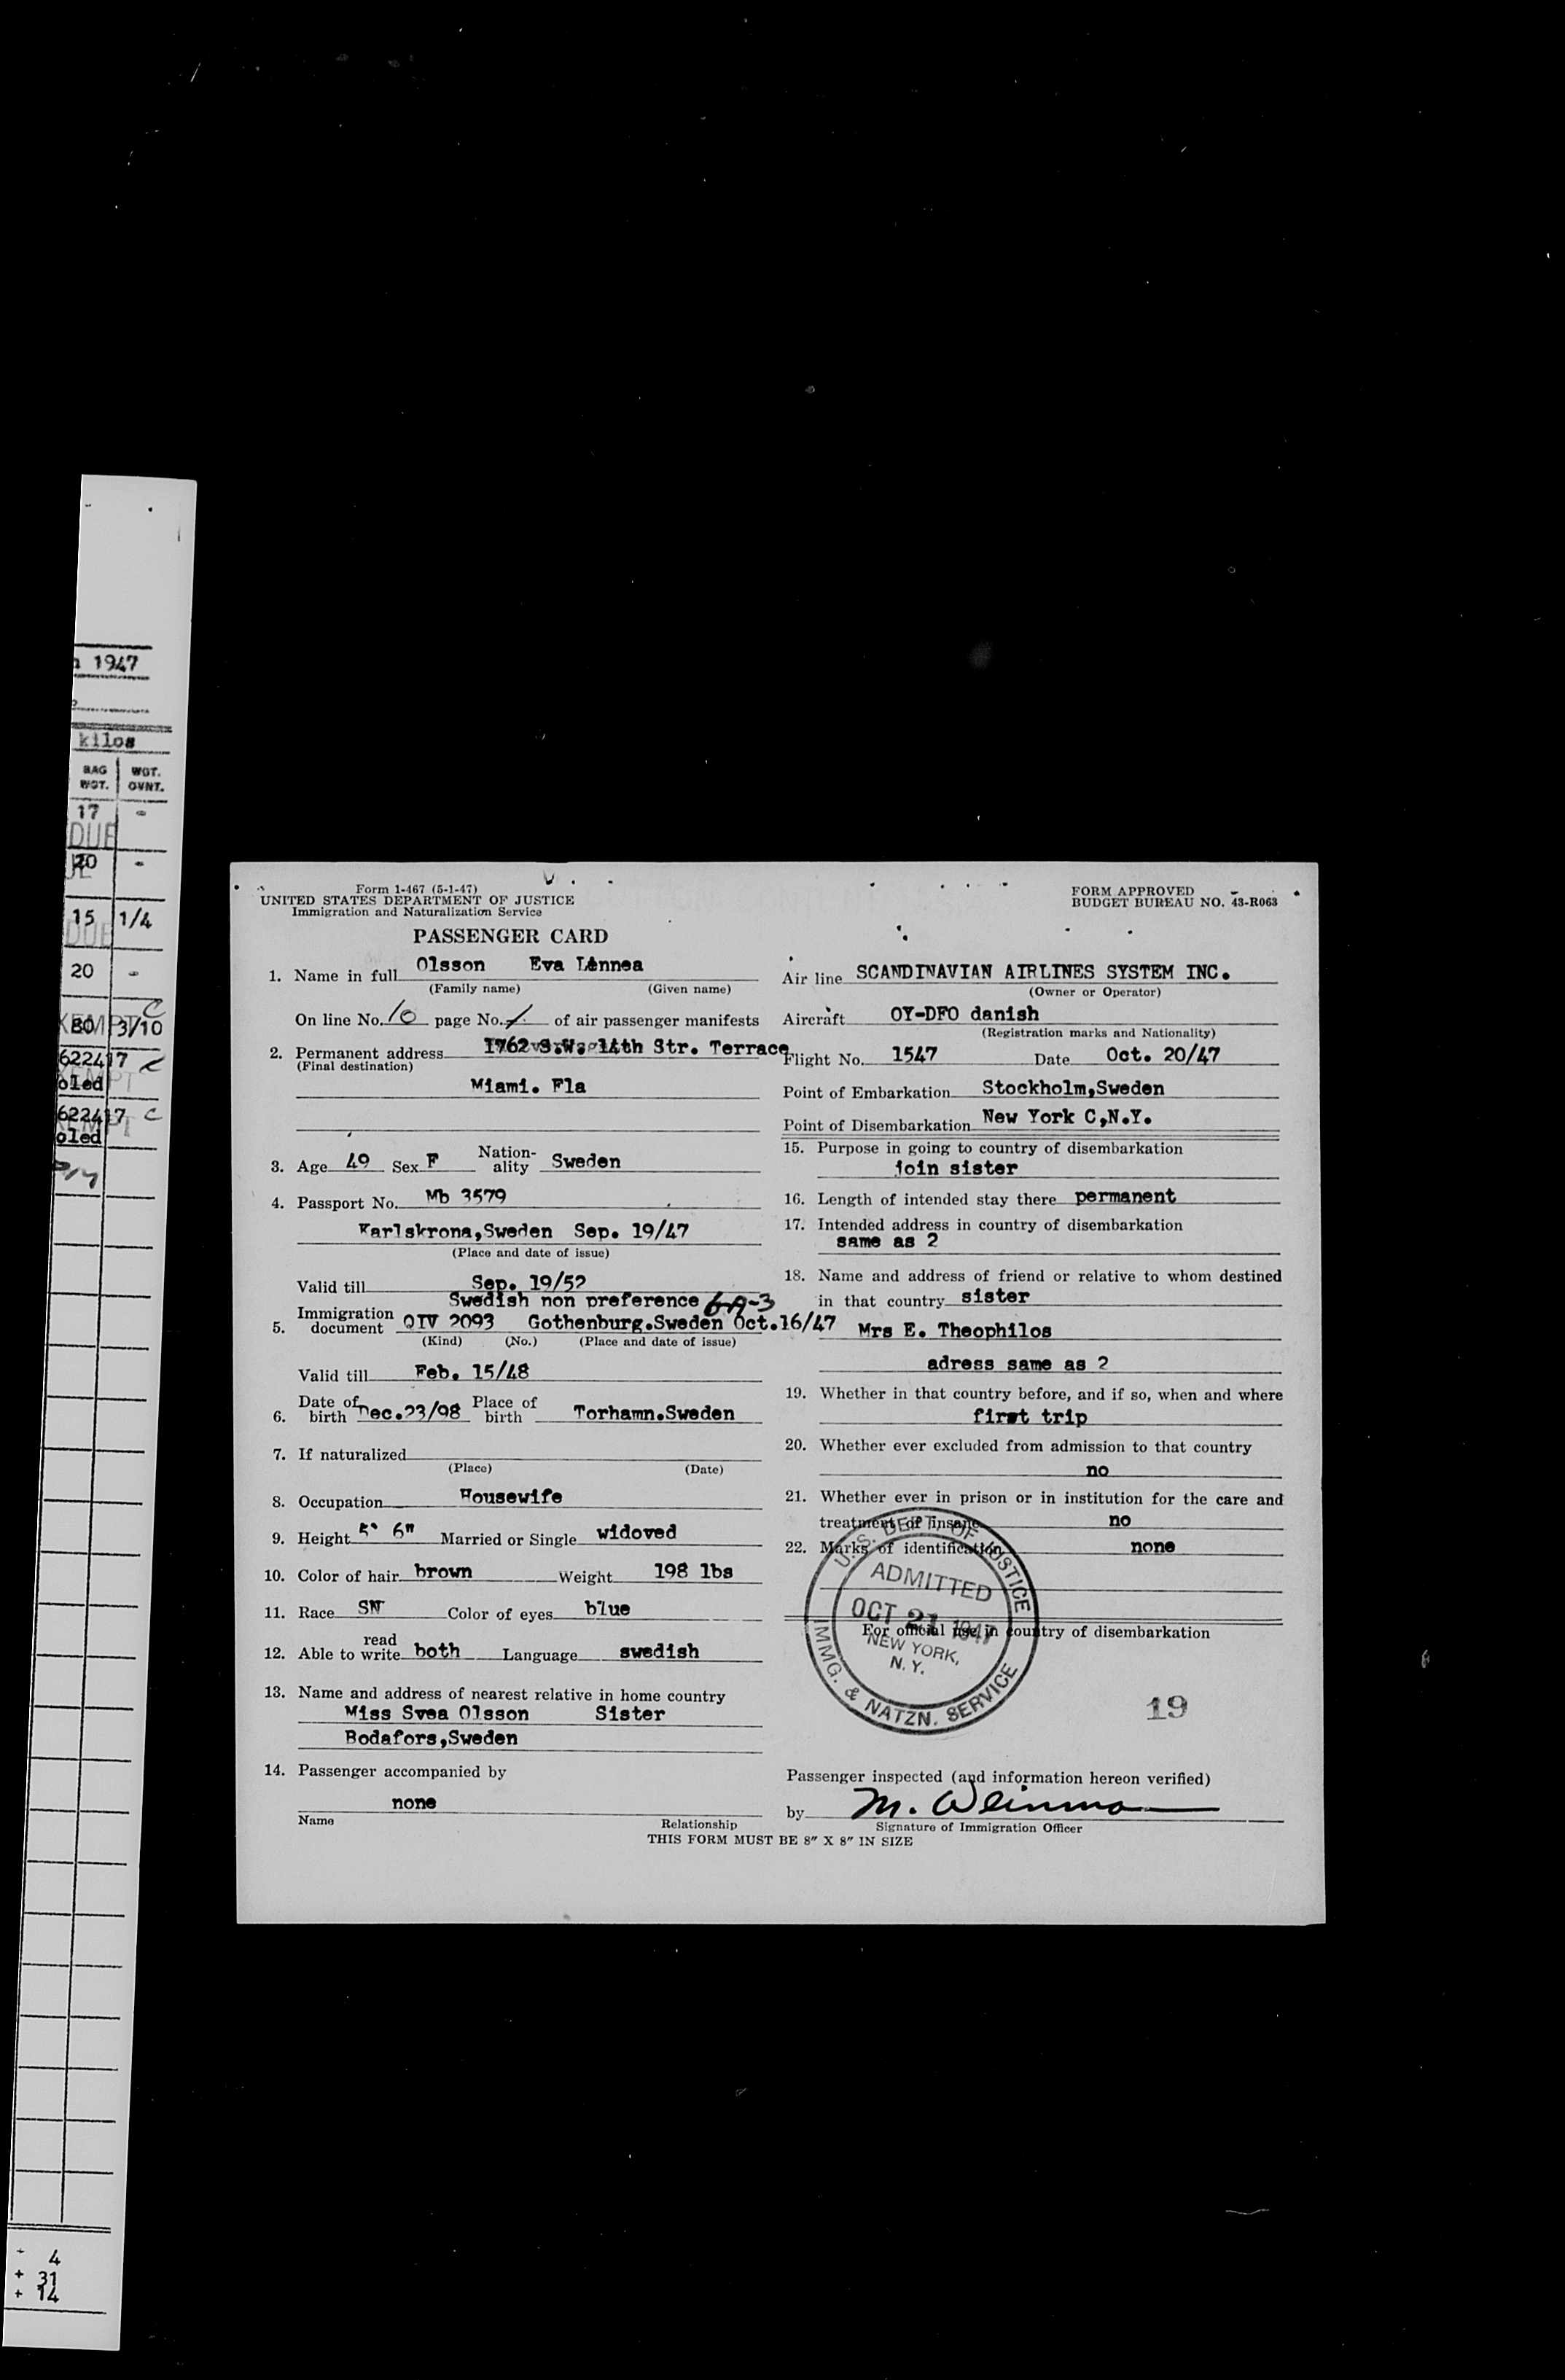 n 1947
kilos
BAG WGT. WGT. OVNT.
17 -
DUE
20 -
15 1/4
DUE
20 -
80 3/10 C
EXEMPT
622417 C
oled
EMPT
622417 C
oled
EXEMPT
- 4
+ 31
+ 14
Form 1-467 (5-1-47)
UNITED STATES DEPARTMENT OF JUSTICE
Immigration and Naturalization Service
FORM APPROVED
BUDGET BUREAU NO. 43-R063
PASSENGER CARD
1. Name in full Olsson Eva Linnea
(Family name) (Given name)
On line No. 10 page No. 1 of air passenger manifests
2. Permanent address 1762 S.W. 14th Str. Terrace
(Final destination)
Miami. Fla
3. Age 49 Sex F Nationality Sweden
4. Passport No. Mb 3579
Karlskrona,Sweden Sep. 19/47
(Place and date of issue)
Valid till Sep. 19/52
Swedish non preference 6-A-3
5. Immigration document QIV 2093 Gothenburg.Sweden Oct.16/47
(Kind) (No.) (Place and date of issue)
Valid till Feb. 15/48
6. Date of birth Dec.23/98 Place of birth Torhamn.Sweden
7. If naturalized
(Place) (Date)
8. Occupation Housewife
9. Height 5' 6" Married or Single widoved
10. Color of hair brown Weight 198 lbs
11. Race SW Color of eyes blue
12. Able to read write both Language swedish
13. Name and address of nearest relative in home country
Miss Svea Olsson Sister
Bodafors,Sweden
14. Passenger accompanied by
none
Name Relationship
Air line SCANDINAVIAN AIRLINES SYSTEM INC.
(Owner or Operator)
Aircraft OY-DFO danish
(Registration marks and Nationality)
Flight No. 1547 Date Oct. 20/47
Point of Embarkation Stockholm,Sweden
Point of Disembarkation New York C,N.Y.
15. Purpose in going to country of disembarkation
join sister
16. Length of intended stay there permanent
17. Intended address in country of disembarkation
same as 2
18. Name and address of friend or relative to whom destined
in that country sister
Mrs E. Theophilos
adress same as 2
19. Whether in that country before, and if so, when and where
first trip
20. Whether ever excluded from admission to that country
no
21. Whether ever in prison or in institution for the care and
treatment of insane no
22. Marks of identification none
U.S. DEPT. OF JUSTICE
ADMITTED
OCT 21 1947
NEW YORK,
N. Y.
IMMG. & NATZN. SERVICE
For official use in country of disembarkation
19
Passenger inspected (and information hereon verified)
by M. Weinman
Signature of Immigration Officer
THIS FORM MUST BE 8" X 8" IN SIZE